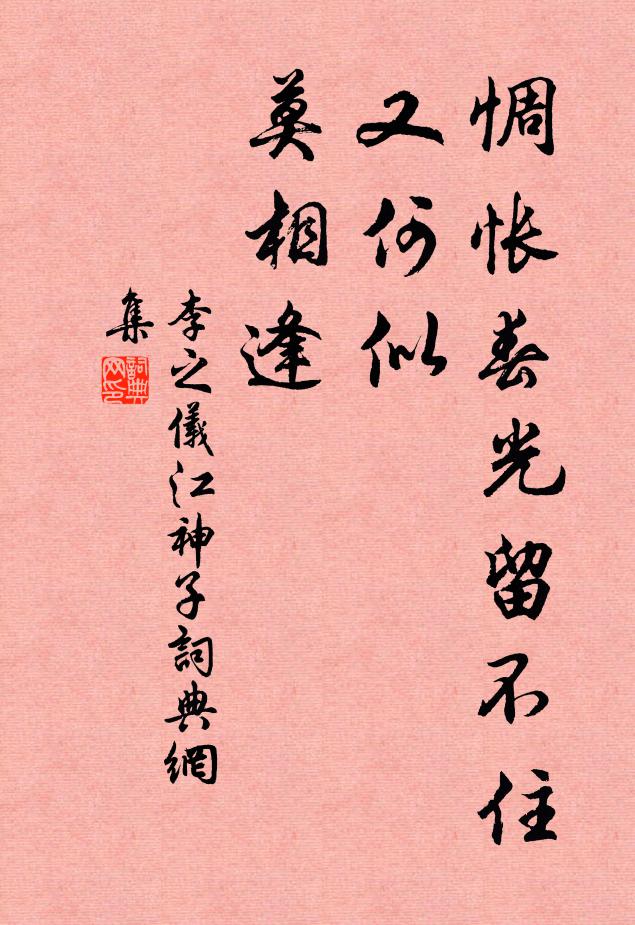 惆怅春光留不住
又何似
莫相逢
李之儀江神子詞典網
集
詞典
网印